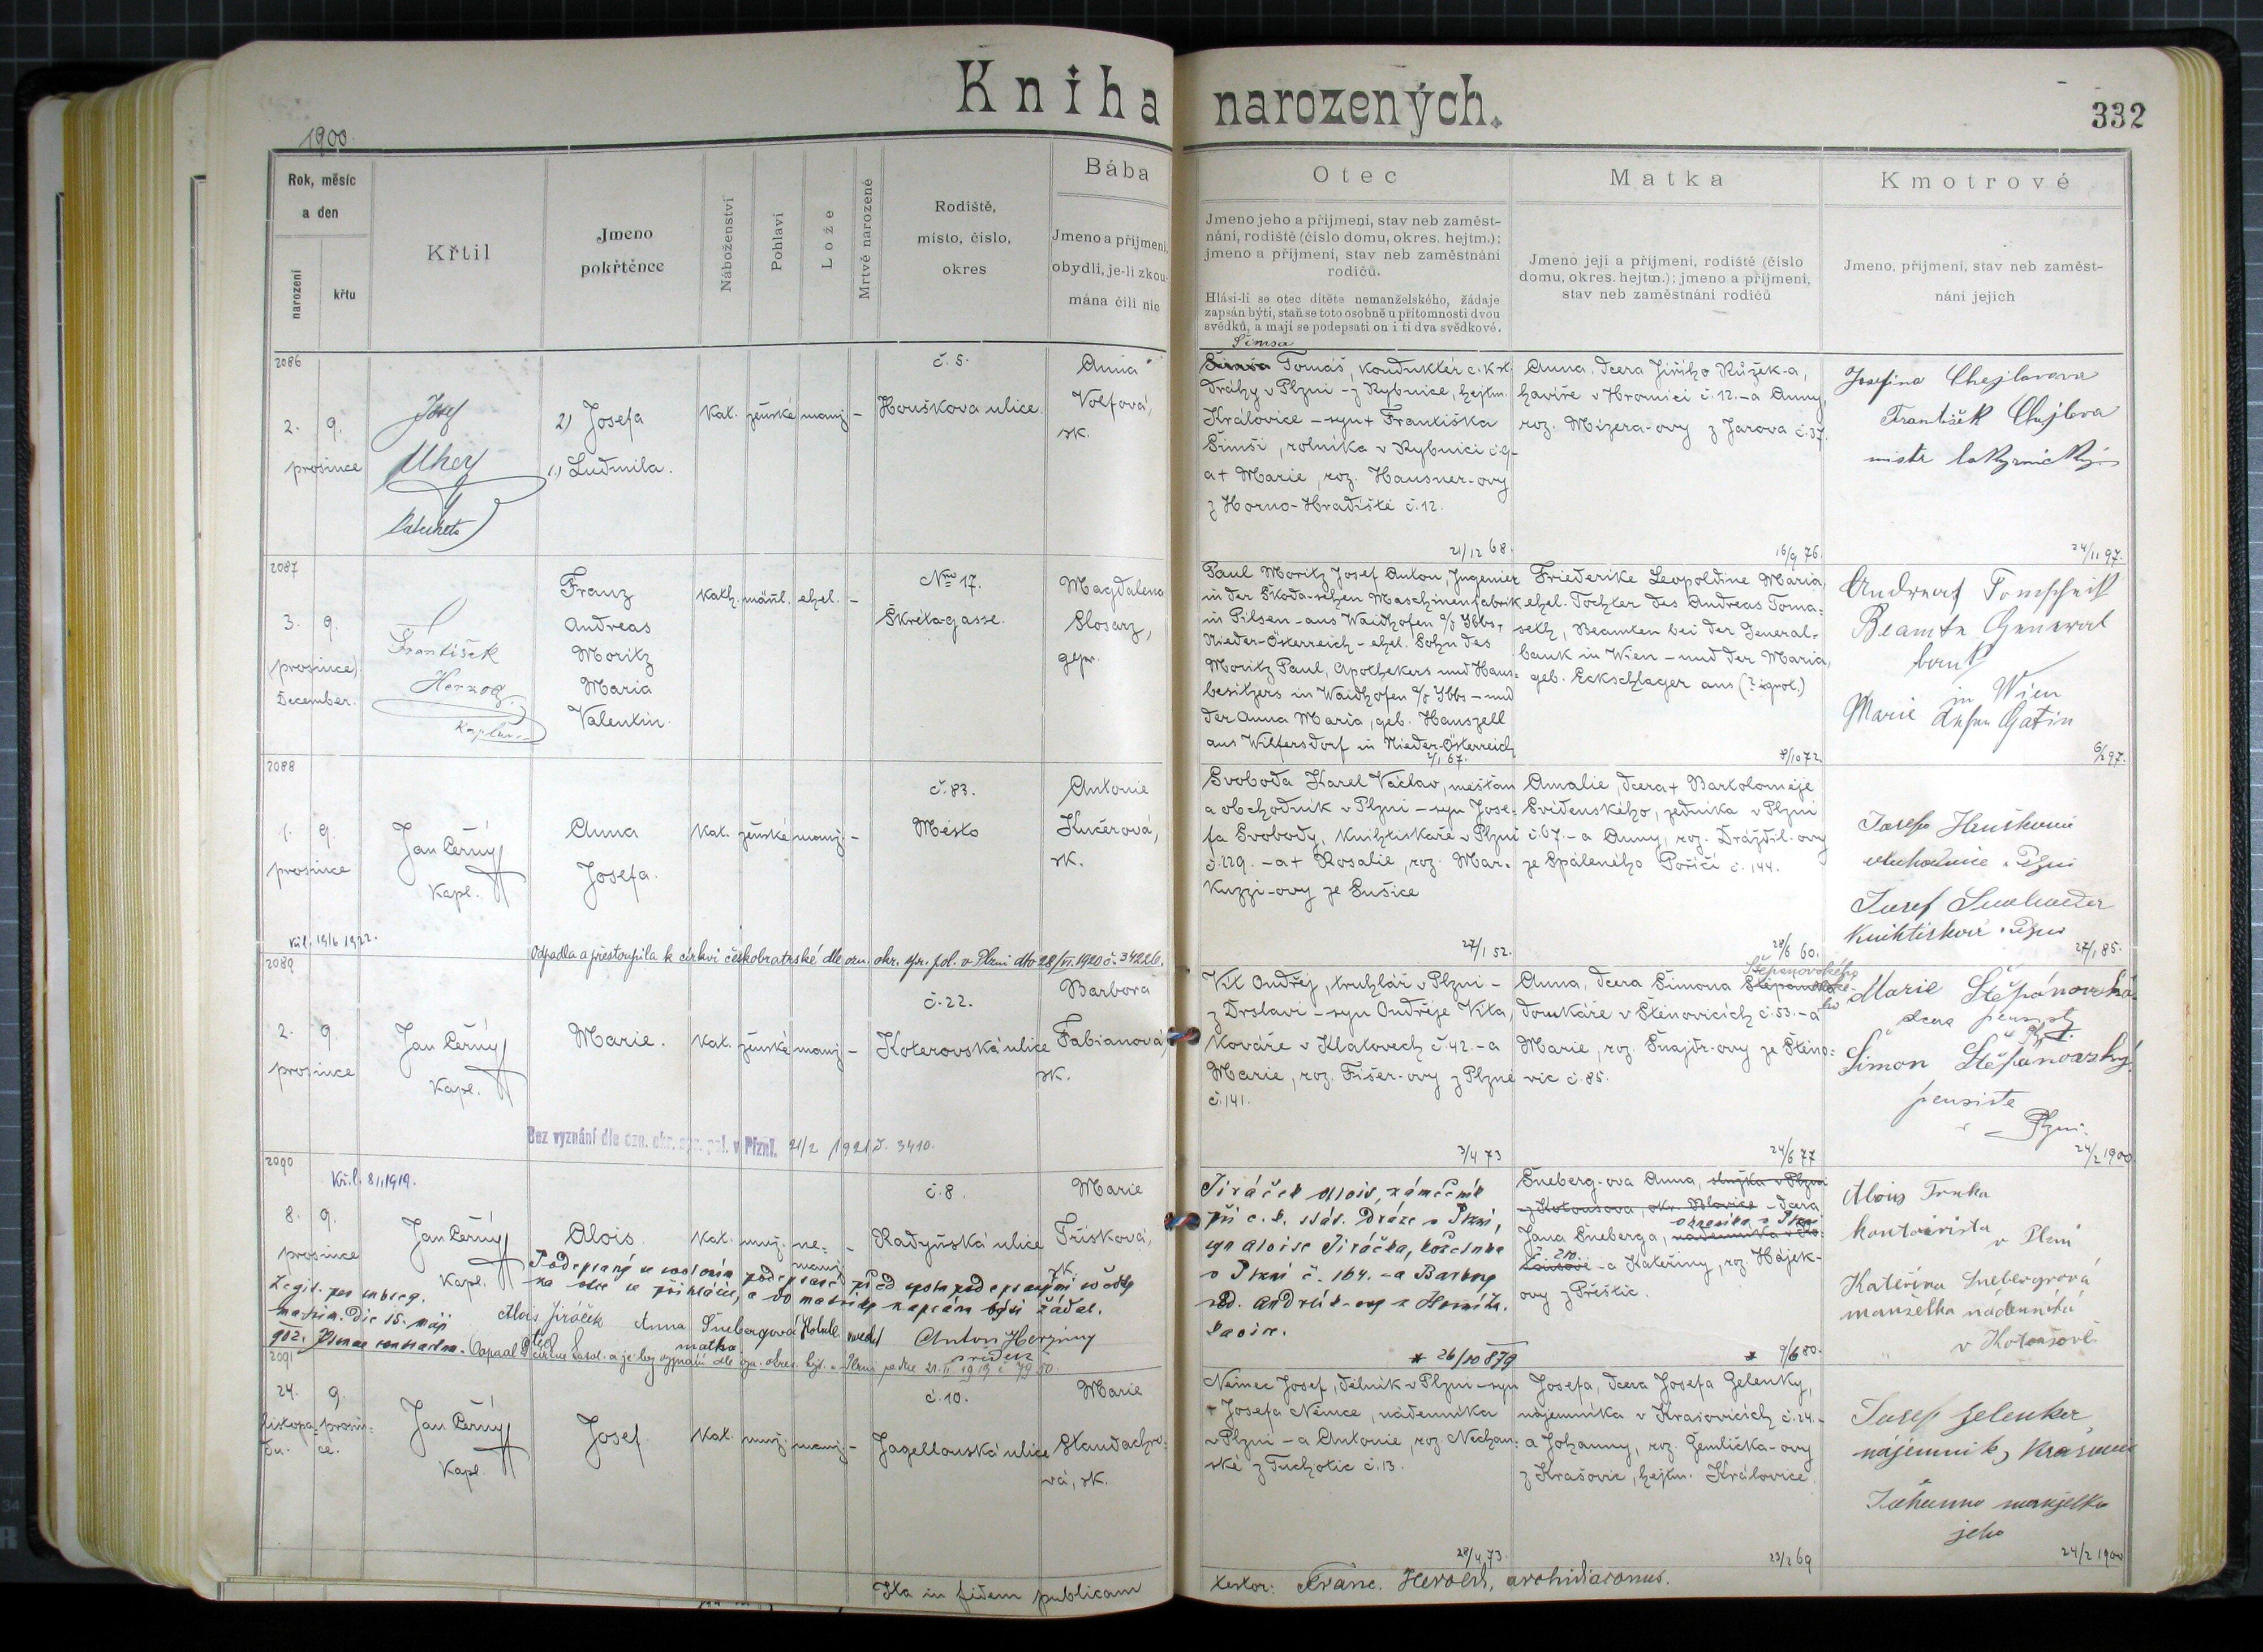 Kniha narozených.
332
1900.
Rok, měsíc
a den
narození
křtu
Křtil
Jmeno
pokřtěnce
Náboženství
Pohlaví
Lože
Mrtvě narozené
Rodiště,
místo, číslo,
okres
Bába
Jmeno a příjmení,
obydlí, je-li zkou-
mána čili nic
Otec
Jmeno jeho a příjmení, stav neb zaměst-
nání, rodiště (číslo domu, okres. hejtm.);
jmeno a příjmení, stav neb zaměstnání
rodičů.
Hlásí-li se otec dítěte nemanželského, žádaje
zapsán býti, staň se toto osobně u přítomnosti dvou
svědků, a mají se podepsati on i ti dva svědkové.
Matka
Jmeno její a příjmení, rodiště (číslo
domu, okres. hejtm.); jmeno a příjmení,
stav neb zaměstnání rodičů
Kmotrové
Jmeno, příjmení, stav neb zaměst-
nání jejich
2086
2. 9.
prosince
Josef
Uher
2) Josefa
1.) Ludmila.
Kat. ženské manž. –
č. 5.
Houškova ulice.
Anna
Volfová,
zk.
Šimsa
Tomáš, konduktér c. k. st.
dráhy v Plzni – z Rybnice, hejtm.
Královice – syn + Františka
Šimsi, rolníka v Rybnici č. 9 –
a + Marie, roz. Hausner-ovy
z Horno-Hradiště č. 12.
21/12 68.
Anna, dcera Jiřího Růžek-a,
havíře v Hromici č. 12. – a Anny,
roz. Mizera-ovy z Jarova č. 37.
16/9 76.
Josefina Chejlavova
František Chejlava
mistr
24/11 97.
2087
3. 9.
(prosince)
December.
František
Herzog,
kaplan
Franz
Andreas
Moritz
Maria
Valentin.
Kath. männl. ehel. –
Nro 17.
Škréta-gasse.
Magdalena
Slosarz,
gepr.
Paul Moritz Josef Anton, Ingenier
in der Škoda-schen Maschinenfabrik
in Pilsen – aus Waidhofen a/d Ybbs,
Nieder-Österreich – ehel. Sohn des
Moritz Paul, Apothekers und Haus-
besitzers in Waidhofen a/d Ybbs – und
der Anna Maria, geb. Hanszell
aus Wilfersdorf in Nieder-Österreich
2/1 67.
Friederike Leopoldine Maria,
ehel. Tochter des Andreas Toma-
seth, Beamten bei der General-
bank in Wien – und der Maria,
geb. Eckschlager aus (? ignot.)
8/10 72.
Andreas
Beamte General
bank
in Wien
Marie dessen Gatin
6/2 97.
2088
1. 9.
prosince
Jan Černý
Kapl.
Anna
Josefa.
Kat. ženské manž. –
č. 83.
Město
Antonie
Kučerová,
zk.
Svoboda Karel Václav, měšťan
a obchodník v Plzni – syn Jose-
fa Svobody, knihtiskaře v Plzni
č. 229. – a + Rosalie, roz. Mar-
kuzzi-ovy ze Sušice
27/1 52.
Amalie, dcera + Bartoloměje
Svidenského, zedníka v Plzni
č. 67. – a Anny, roz. Dráždil-ovy
ze Spáleného Poříčí č. 144.
28/6 60.
Josef
knihtiskař v Plzni
27/1 85.
Odpadla a přestoupila k církvi českobratrské dle ozn. okr. spr. pol. v Plzni dto 28/VI. 1920 č. 34226.
2089
2. 9.
prosince
Jan Černý
Kapl.
Marie.
Kat. ženské manž. –
č. 22.
Koterovská ulice
Barbora
Fabianová,
zk.
Vít Ondřej, truhlář v Plzni –
z Drslavi – syn Ondřeje Víta,
kováře v Klatovech č. 42. – a
Marie, roz. Fišer-ovy z Plzně
č. 141.
3/4 73
Štěpanovského
Anna, dcera Šimona
domkáře v Štěnovicích č. 53. – a
Marie, roz. Šnajdr-ovy ze Štěno-
vic č. 85.
24/6 77
Marie Štěpánovská
dcera
Šimon Štěpánovský
pensista
v Plzni.
24/2 1900.
Bez vyznání dle ozn. okr. spr. pol. v Plzni. 21/2 1921 č. 3410.
2090
Kř. l. 8/1 1919.
8. 9.
prosince
Jan Černý
Kapl.
Alois
Kat. muž. ne-
manž. –
č. 8.
Radyňská ulice
Marie
Tříšková,
zk.
Jiráček Alois, zámečník
při c. k. stát. dráze v Plzni,
syn Aloise Jiráčka,
v Plzni č. 164. – a Barbory
roz.
* 26/10 879
Šneberg-ova Anna, služka v Plzni
z Kotousova, okr. Blovice – dcera
Jana Šneberga,
č. 210. – a Kateřiny, roz. Hájek-
ovy z Přeštic.
* 9/6 80.
Alois Trnka
kontorista
v Plzni
Kateřina Snebergrová
manželka nádenníka
v Kotousově
Podepsaný se vlastním podepsáním před spolupodepsanými svědky
za otce se přihlásil, a do matriky zapsán býti žádal.
Legit. per subseq.
matrim. die 15. máji
902.
Alois Jiráček
otec
Anna Šnebergová
matka
svědek
Anton
svědek
2091
24. 9.
listopa- prosin-
du. ce.
Jan Černý
Kapl.
Josef
Kat. muž. manž. –
č. 10.
Jagellonská ulice
Marie
Standachro-
vá, zk.
Němec Josef, dělník v Plzni – syn
+ Josefa Němce, nádenníka
v Plzni – a Antonie, roz. Nechan-
ské z Tuchotic č. 13.
28/4 73.
Josefa, dcera Josefa Zelenky,
nájemníka v Krašovicích č. 24. –
a Johanny, roz. Žemlička-ovy
z Krašovic, hejtm. Královice.
23/2 69
Josef Zelenka
nájemník
Johanna manželka
jeho
24/2 1900
Ita in fidem publicam
testor: Franc. Herold, archidiaconus.